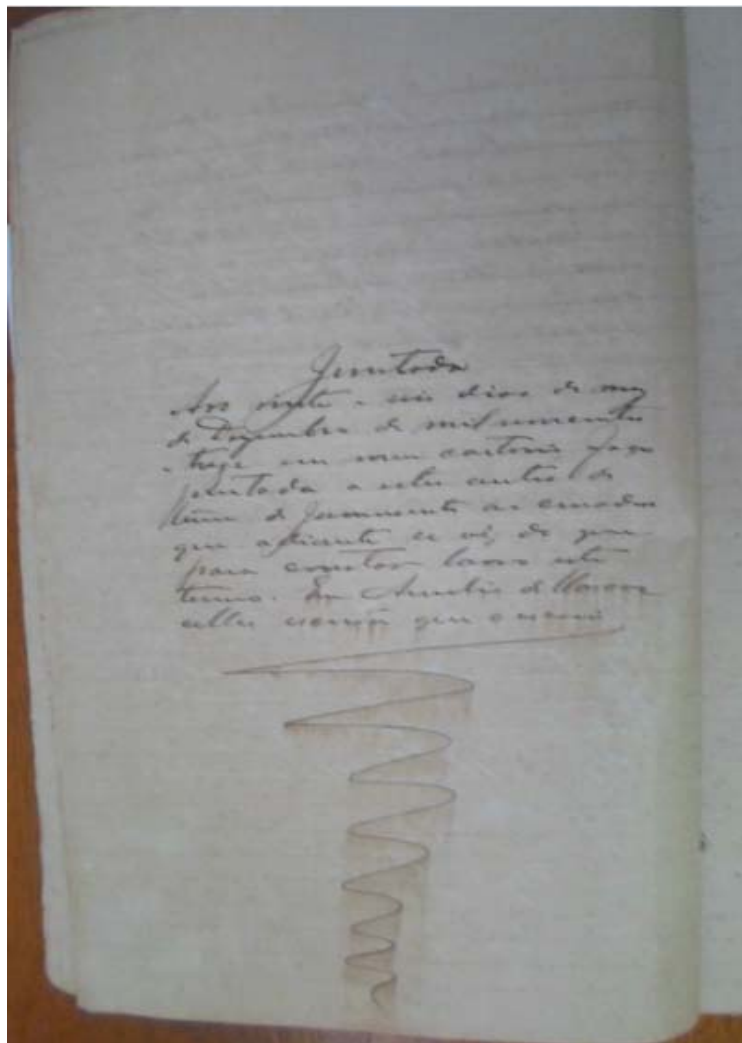 Juntada
Aos vinte e seis dias do mez
de Dezembro de mil novecentos
e treze em meu cartorio faço
juntada a estes autos do
termo de Juramento
que adiante se vê; do que
para constar lavro este
termo. Eu de
escrivão que o escrevi